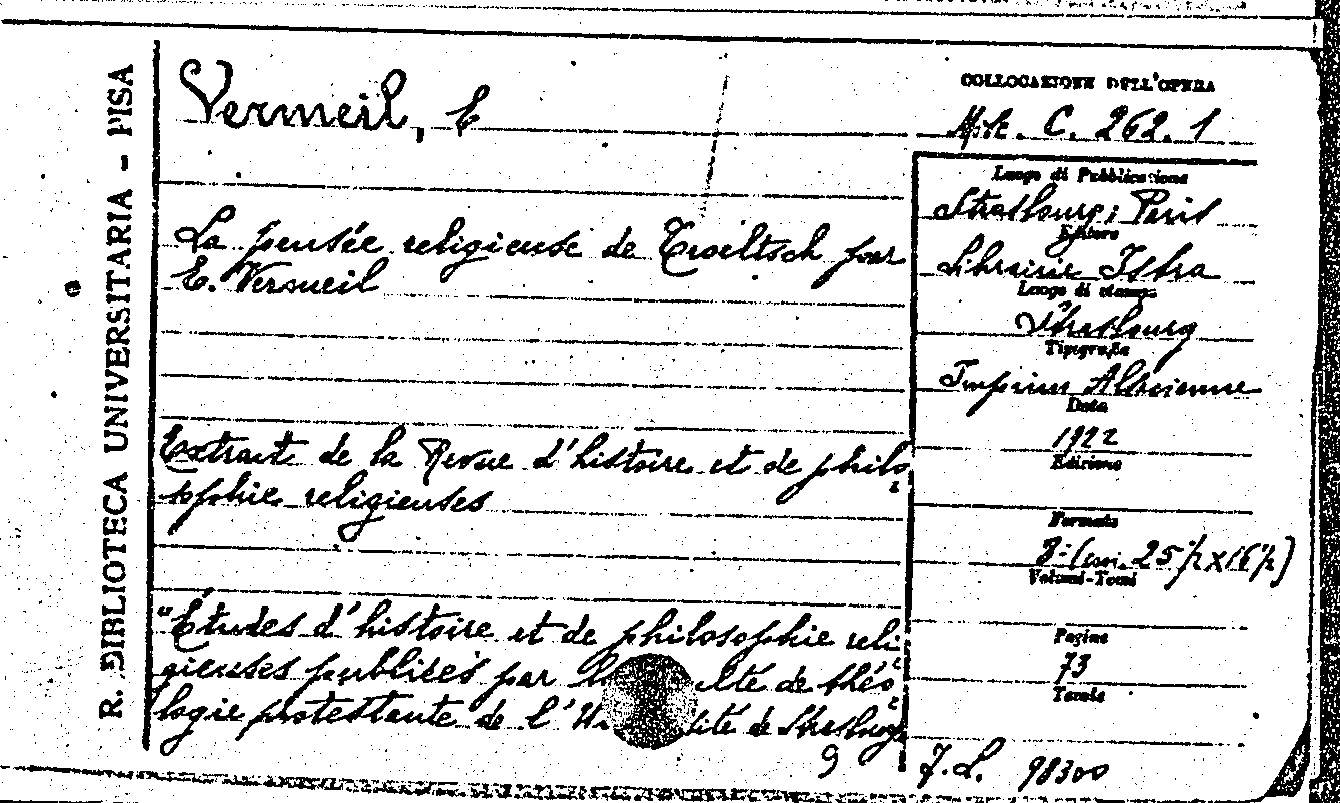 R. BIBLIOTECA UNIVERSITARIA - PISA
Vermeil, E
La pensée religieuse de Troeltsch par
E. Vermeil
Extrait de la Revue d'histoire et de philo
sophie religieuses
"Études d'histoire et de philosophie reli
gieuses publiées par la lté de théo
logie protestante de l'U sité de Strasbourg
9
COLLOCAZIONE DELL'OPERA
Misc. C. 262. 1
Luogo di Pubblicazione
Strasbourg; Paris
Editore
Librairie Istra
Luogo di stampa
Strasbourg
Tipografia
Imprim Alsacienne
Data
1922
Edizione
Formato
8° (cm. 25 ½ x 16 ½)
Volumi-Tomi
Pagine
73
Tavole
F.L. 98300